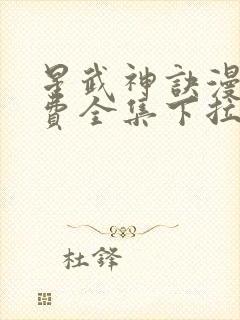 星武神訣漫
費全集下拉
杜鋒